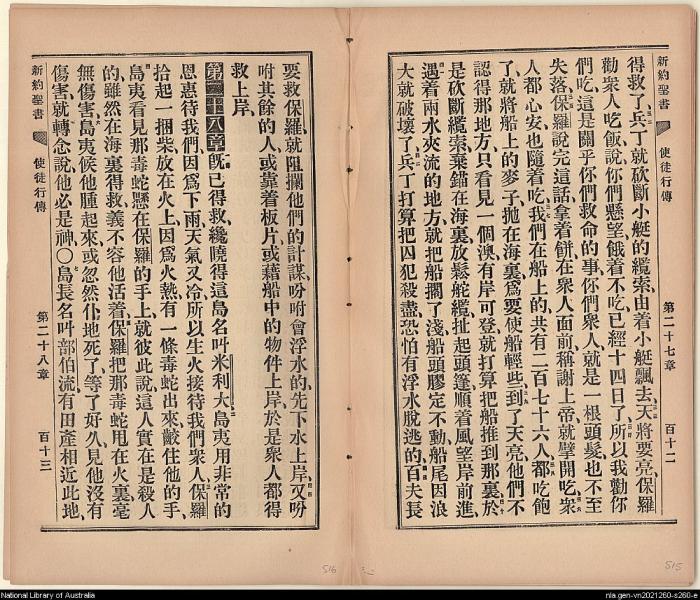 新約聖書 使徒行傳 第二十七章 百十二
得救了、兵丁就砍斷小艇的纜索、由着小艇飄去、天將要亮、保羅
勸衆人吃飯、說、你們懸望餓着不吃、已經十四日了、所以我勸你
們吃、這是關乎你們救命的事、你們衆人、就是一根頭髮也不至
失落、保羅說完這話、拿着餅、在衆人面前稱謝上帝、就擘開吃、衆
人都心安也隨着吃、我們在船上的共有二百七十六人、都吃飽
了就將船上的麥子拋在海裏、爲要使船輕些、到了天亮、他們不
認得那地方、只看見一個澳有岸可登、就打算把船推到那裏、於
是砍斷纜索、棄錨在海裏、放鬆舵纜、扯起頭篷、順着風望岸前進、
遇着兩水夾流的地方、就把船擱了淺、船頭膠定不動、船尾因浪
大就破壞了、兵丁打算把囚犯殺盡、恐怕有浮水脫逃的、百夫長
要救保羅、就阻攔他們的計謀、吩咐會浮水的、先下水上岸、又吩
咐其餘的人、或靠着板片、或藉船中的物件上岸、於是衆人都得
救上岸
第二十八章 既已得救、纔曉得這島名叫米利大、島夷用非常的
恩惠待我們、因爲下雨、天氣又冷、所以生火接待我們衆人、保羅
拾起一捆柴、放在火上、因爲火熱、有一條毒蛇出來、齩住他的手、
島夷看見那毒蛇懸在保羅的手上、就彼此說、這人實在是殺人
的、雖然在海裏得救、義不容他活着、保羅把那毒蛇甩在火裏、毫
無傷害、島夷候他腫起來、或忽然仆地死了、等了好久、見他沒有
傷害、就轉念說、他必是神○島長名叫部伯流、有田產相近此地、
新約聖書 使徒行傳 第二十八章 百十三
516
515
National Library of Australia
nla.gen-vn2021260-s260-e